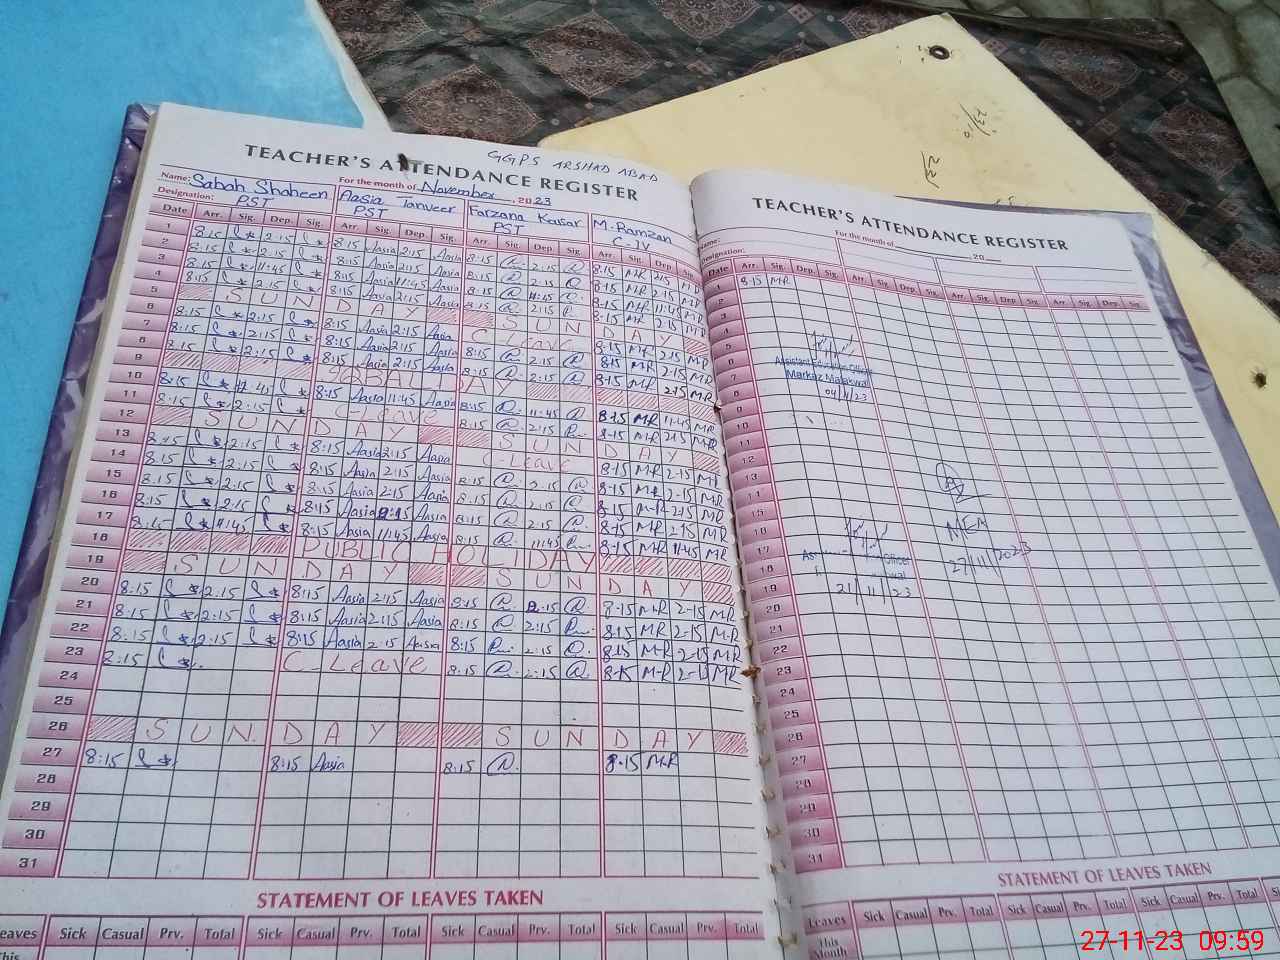 GGPS ARSHAD ABAD
TEACHER'S ATTENDANCE REGISTER
For the month of November, 2023
Name: Sabah Shaheen Aasia Tanveer Farzana Kausar M. Ramzan
Designation: PST PST PST C-IV
Date Arr. Sig. Dep. Sig. Arr. Sig. Dep. Sig. Arr. Sig. Dep. Sig. Arr. Sig. Dep. Sig.
1 8:15 2:15 8:15 Aasia 2:15 Aasia 8:15 2:15 8:15 MR 2:15 MR
2 8:15 2:15 8:15 Aasia 2:15 Aasia 8:15 2:15 8:15 MR 2:15 MR
3 8:15 11:45 8:15 Aasia 11:45 Aasia 8:15 11:45 8:15 MR 11:45 MR
4 8:15 2:15 8:15 Aasia 2:15 Aasia 8:15 2:15 8:15 MR 2:15 MR
5 SUNDAY SUNDAY
6 8:15 2:15 8:15 Aasia 2:15 Aasia C-Leave 8:15 MR 2:15 MR
7 8:15 2:15 8:15 Aasia 2:15 Aasia 8:15 2:15 8:15 MR 2:15 MR
8 8:15 2:15 8:15 Aasia 2:15 Aasia 8:15 2:15 8:15 MR 2:15 MR
9 DAY
10 8:15 11:45 8:15 Aasia 11:45 Aasia 8:15 11:45 8:15 MR 11:45 MR
11 8:15 2:15 C-Leave 8:15 2:15 8:15 MR 2:15 MR
12 SUNDAY SUNDAY
13 8:15 2:15 8:15 Aasia 2:15 Aasia C-Leave 8:15 MR 2:15 MR
14 8:15 2:15 8:15 Aasia 2:15 Aasia 8:15 2:15 8:15 MR 2:15 MR
15 8:15 2:15 8:15 Aasia 2:15 Aasia 8:15 2:15 8:15 MR 2:15 MR
16 8:15 2:15 8:15 Aasia 2:15 Aasia 8:15 2:15 8:15 MR 2:15 MR
17 8:15 11:45 8:15 Aasia 11:45 Aasia 8:15 11:45 8:15 MR 11:45 MR
18 PUBLIC HOLIDAY
19 SUNDAY SUNDAY
20 8:15 2:15 8:15 Aasia 2:15 Aasia 8:15 2:15 8:15 MR 2:15 MR
21 8:15 2:15 8:15 Aasia 2:15 Aasia 8:15 2:15 8:15 MR 2:15 MR
22 8:15 2:15 8:15 Aasia 2:15 Aasia 8:15 2:15 8:15 MR 2:15 MR
23 8:15 C-Leave 8:15 2:15 8:15 MR MR
24
25
26 SUNDAY SUNDAY
27 8:15 8:15 Aasia 8:15 8:15 MR
28
29
30
31
STATEMENT OF LEAVES TAKEN
Leaves Sick Casual Prv. Total Sick Casual Prv. Total Sick Casual Prv. Total Sick Casual Prv. Total
This
TEACHER'S ATTENDANCE REGISTER
For the month of 20
Name:
Designation:
Date Arr. Sig. Dep. Sig. Arr. Sig. Dep. Sig. Arr. Sig. Dep. Sig. Arr. Sig. Dep. Sig.
1 8:15 MR
2
3
4
5
6 Assistant Education Officer
7 Markaz Malakwal
8 04/11/23
9
10
11
12
13
14
15
16 MEA
17 Officer 27/11/2023
18
19 21/11/23
20
21
22
23
24
25
26
27
28
29
30
31
STATEMENT OF LEAVES TAKEN
Leaves Sick Casual Prv. Total Sick Casual Prv. Total Sick Casual Prv. Total
This
Month
27-11-23 09:59